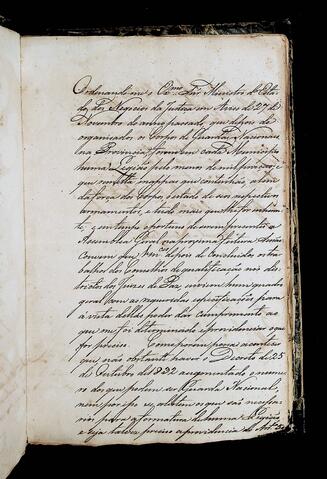 Ordenando-me o Ex.mo Snr. Ministro d'Esta
do dos Negocios da Justiça em Aviso de 27 de
Novembro do anno passado, que depois de
organisados os Corpos de Guardas Nacionaes
na Provincia, formem cada Municipio
huma Legião pelo menos de mil praças, e
que remetta mappas que contenhão, alem
da força dos Corpos, o estado de seus respectivos
armamentos, e tudo mais que lhe for concernen
te, em tempo opportuno de serem presentes á
Assemblea Geral na proxima futura
Convem que V.m.ces depois de concluidos os tra
balhos dos Conselhos de qualificação nos dis
trictos dos Juizes de Paz, enviem hum quadro
geral com as requeridas especificações para
á vista delle poder dar cumprimento ao
que me foi determinado, e providenciar o que
for preciso. Como porem possa acontecer
que não obstante haver o Decreto de 25
de Outubro de 1832 augmentado o nume
ro dos que podem ser Guarda Nacional,
nem por isso se obtenha os que são necessa
rios para a formatura de huma Legião,
e seja talvez preciso a providencia do Art.